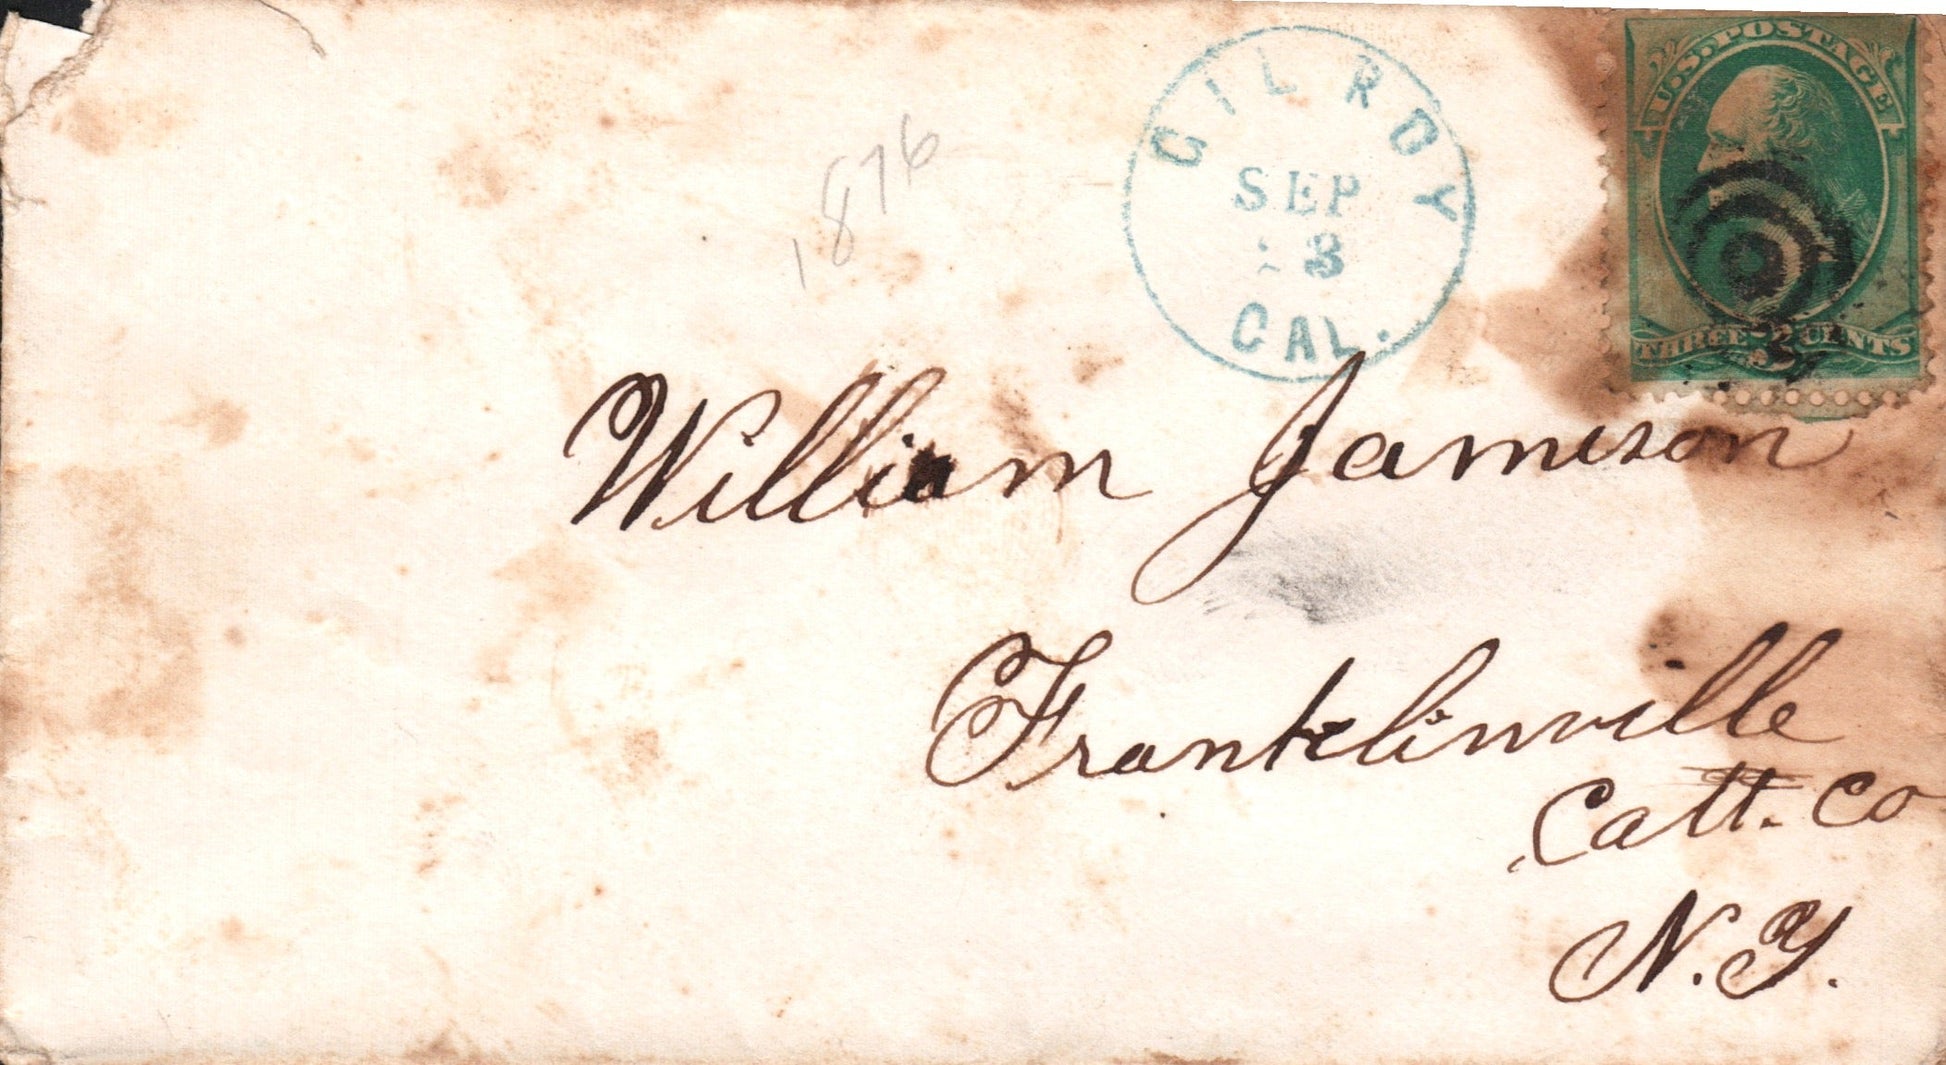 1876
GILROY
SEP
8
CAL.
U.S. POSTAGE
THREE 3 CENTS
William Jamison
Franklinville
Catt. Co
N.Y.